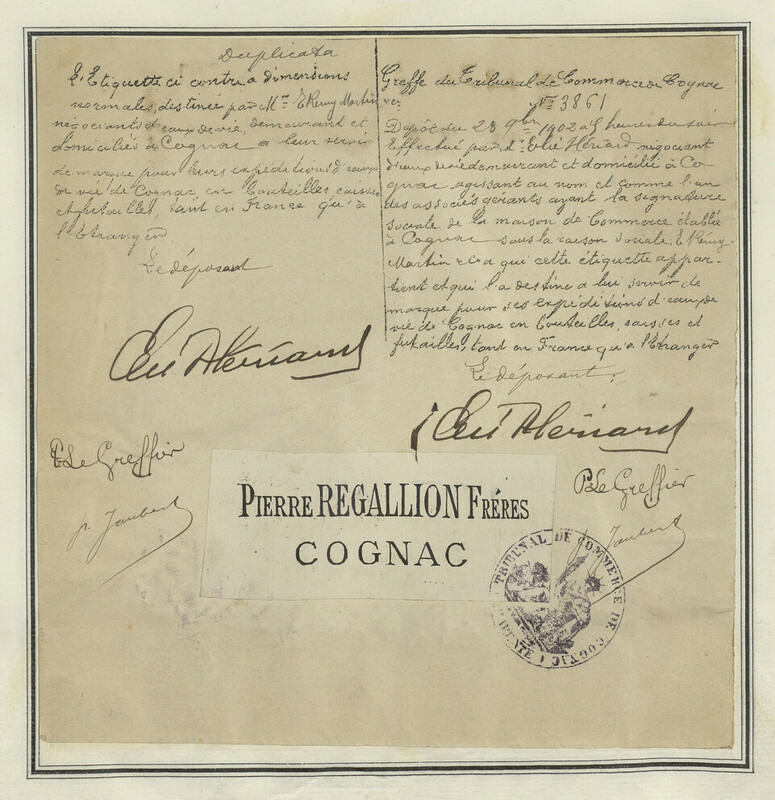 Duplicata
L'Etiquette ci contre a dimensions
normales, destinée par Mrs E Remy Martin
négociants d'eaux de vie, demeurant et
domiciliés à Cognac a leur servir
de marque pour leurs expéditions d'eaux
de vie de Cognac en bouteilles, caisses
et futailles, tant en France qu'à
l'Etranger
Le déposant
P. Le Greffier
p. Jaubert
Greffe du Tribunal de Commerce de Cognac
No 3861
Dépôt du 28 9bre 1902 a 5 heures du soir
Effectué par Mr Elie Hériard négociant
d'eaux de vie demeurant et domicilié à Co-
gnac agissant au nom et comme l'un
des associés gérants ayant la signature
sociale de la maison de Commerce établie
à Cognac sous la raison sociale, E Rémy-
Martin & Co a qui cette étiquette appar-
tient et qui l'a destine a lui servir de
marque pour ses expéditions d'eaux de
vie de Cognac en bouteilles, caisses et
futailles, tant en France qu'a l'Etranger
Le déposant:
P. Le Greffier
Jaubert
PIERRE REGALLION FRÉRES
COGNAC
TRIBUNAL DE COMMERCE DE COGNAC